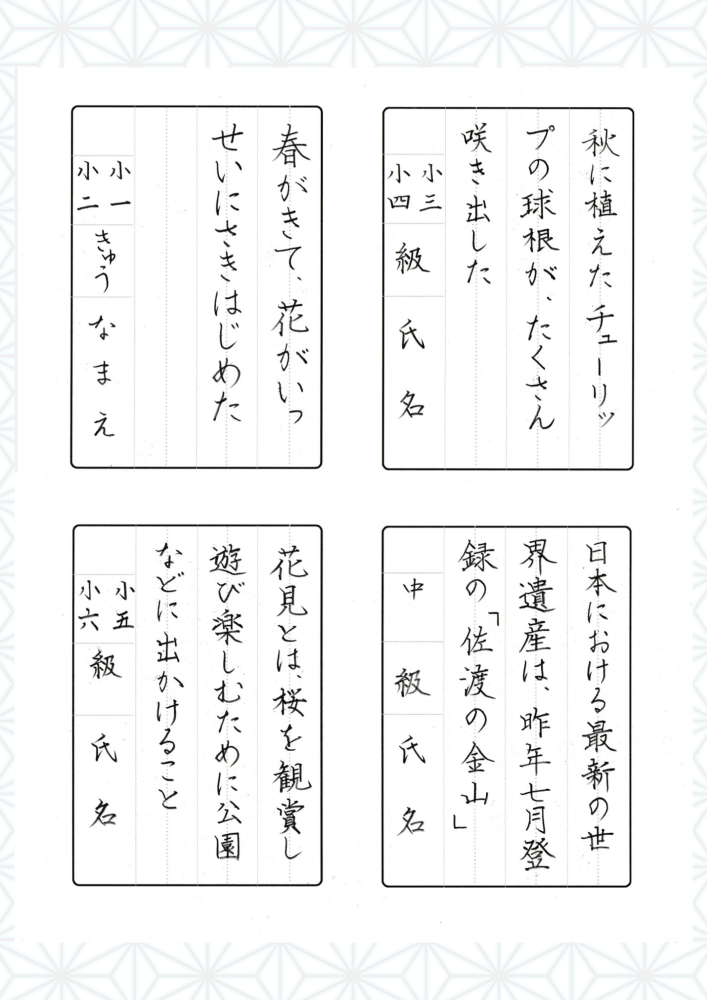 秋に植えたチューリッ
プの球根が、たくさん
咲き出した
小三
小四
級
氏名
春がきて、花がいっ
せいにさきはじめた
小一
小二
きゅう
なまえ
日本における最新の世
界遺産は、昨年七月登
録の「佐渡の金山」
中
級
氏名
花見とは、桜を観賞し
遊び楽しむために公園
などに出かけること
小五
小六
級
氏名